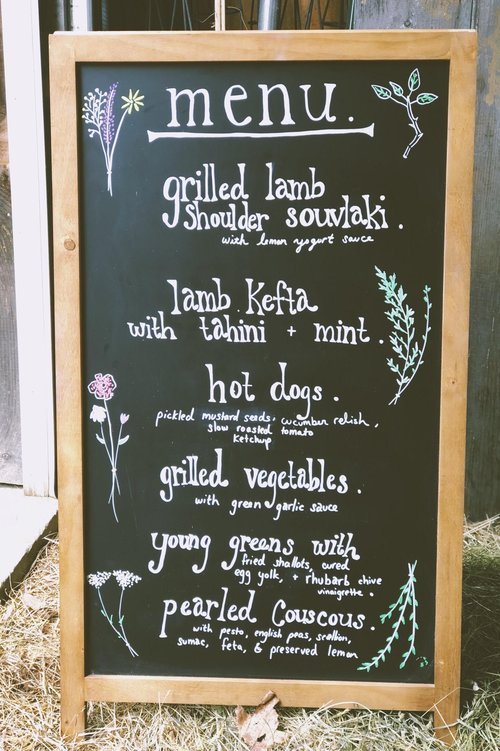 menu.
grilled lamb
shoulder souvlaki.
with lemon yogurt sauce
lamb Kefta
with tahini + mint.
hot dogs.
pickled mustard seeds, cucumber relish,
slow roasted tomato
ketchup
grilled vegetables.
with green garlic sauce
young greens with
fried shallots, cured
egg yolk, + rhubarb chive
vinaigrette.
pearled Couscous.
with pesto, english peas, scallion,
sumac, feta, & preserved lemon